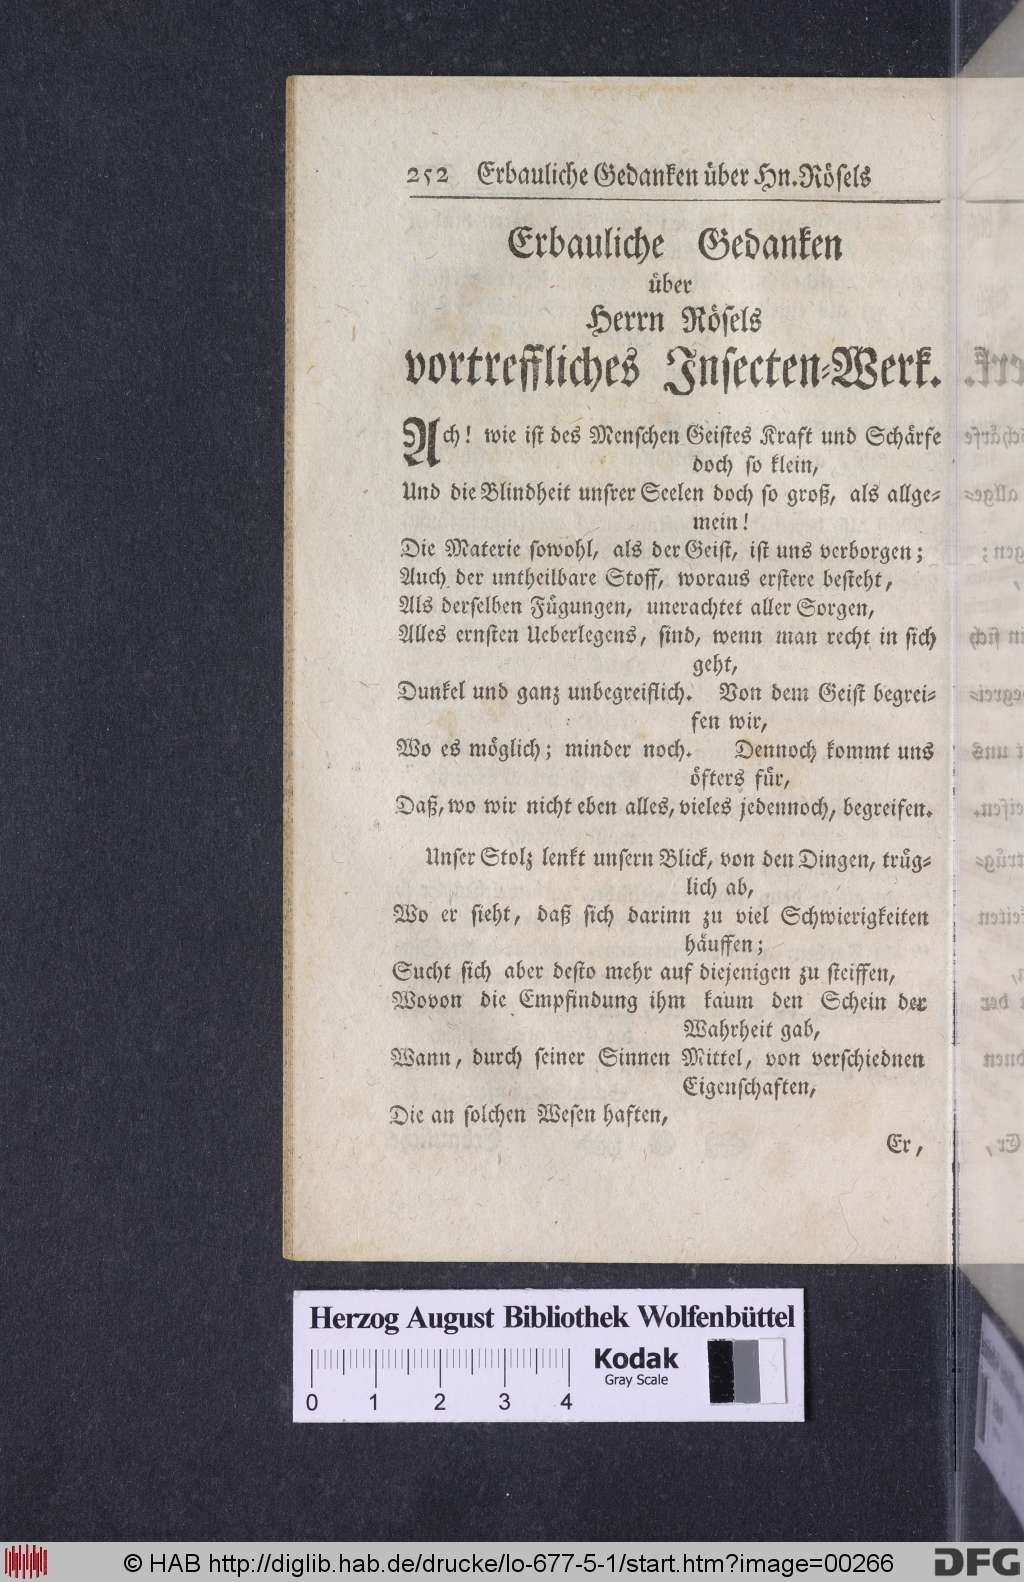 252 Erbauliche Gedanken über Hn. Rösels
Erbauliche Gedanken
über
Herrn Rösels
vortreffliches Insecten-Werk.
Ach! wie ist des Menschen Geistes Kraft und Schärfe
doch so klein,
Und die Blindheit unsrer Seelen doch so groß, als allge-
mein!
Die Materie sowohl, als der Geist, ist uns verborgen;
Auch der untheilbare Stoff, woraus erstere besteht,
Als derselben Fügungen, unerachtet aller Sorgen,
Alles ernsten Ueberlegens, sind, wenn man recht in sich
geht,
Dunkel und ganz unbegreiflich. Von dem Geist begrei-
fen wir,
Wo es möglich; minder noch. Dennoch kommt uns
öfters für,
Daß, wo wir nicht eben alles, vieles jedennoch, begreifen.
Unser Stolz lenkt unsern Blick, von den Dingen, trüg-
lich ab,
Wo er sieht, daß sich darinn zu viel Schwierigkeiten
häuffen;
Sucht sich aber desto mehr auf diejenigen zu steiffen,
Wovon die Empfindung ihm kaum den Schein der
Wahrheit gab,
Wann, durch seiner Sinnen Mittel, von verschiednen
Eigenschaften,
Die an solchen Wesen haften,
Er,
Herzog August Bibliothek Wolfenbüttel
Kodak
Gray Scale
0 1 2 3 4
© HAB http://diglib.hab.de/drucke/lo-677-5-1/start.htm?image=00266
DFG